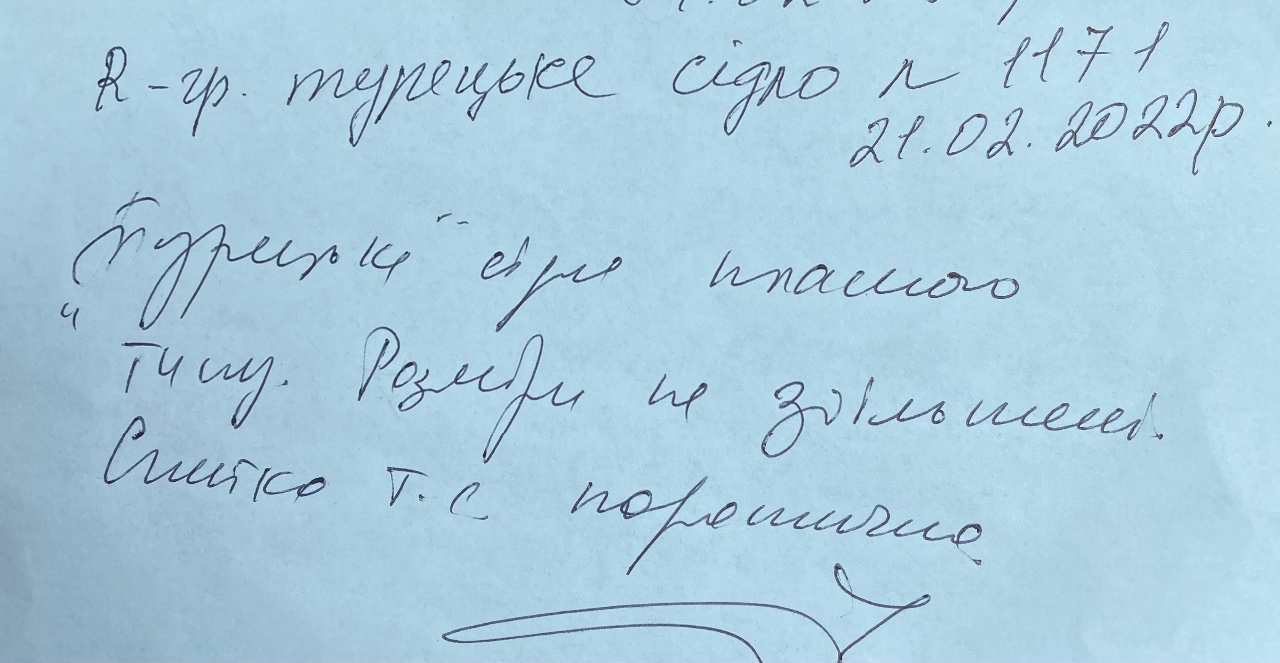 R-гр. турецьке сідло № 1171
21.02.2022р.
"Турецьке" сідло плаского
типу. Розміри не збільшені.
Спинка т.с поротична